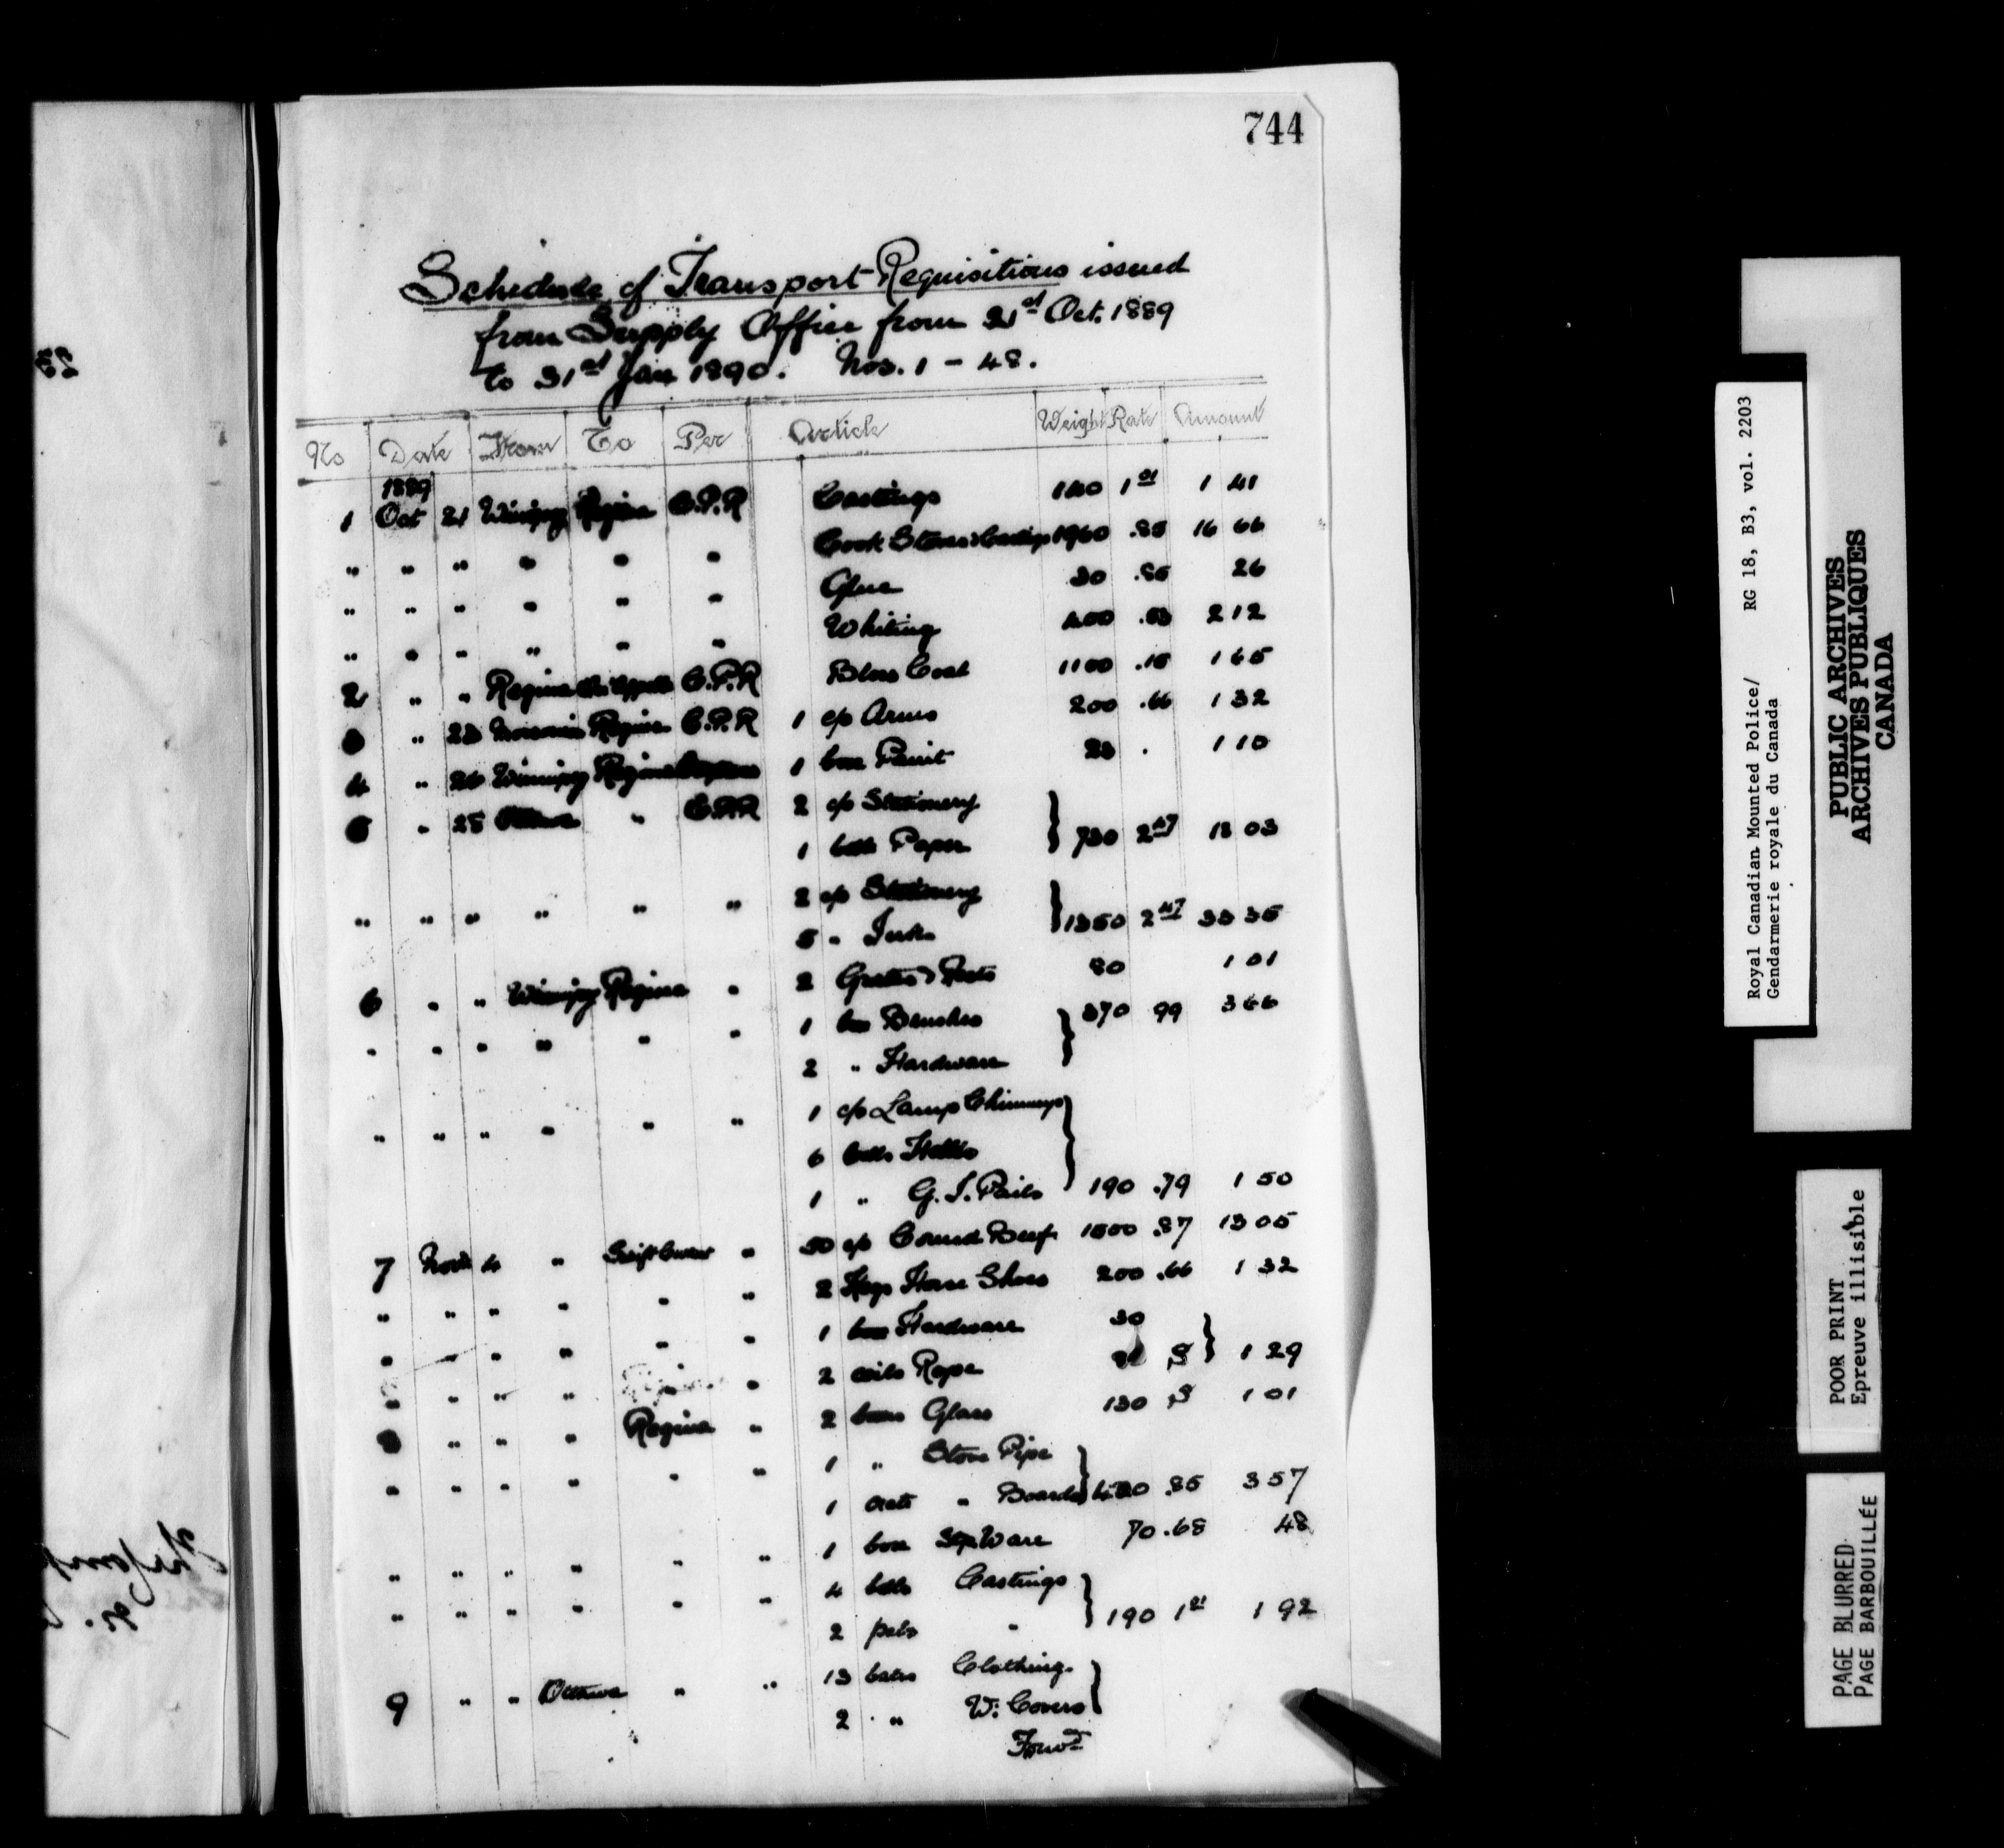 744
Schedule of Transport Requisitions issued
from Supply Office from 21st Oct. 1889
to 31st Jan 1890. Nos. 1 - 48.
No Date From To Per Article Weight Rate Amount
1889
1 Oct 21 Winnipeg Regina C.P.R Castings 140 1 01 1 41
" " " " " " Cook Stoves & Castings 1960 .85 16 66
" " " " " " Glue 30 .85 26
" " " " " " Whiting 400 .53 2 12
2 " " Regina Qu'Appelle C.P.R Coal 1100 .15 1 65
3 " 23 Regina C.P.R 1 c/s Arms 200 .66 1 32
4 " 24 Winnipeg Regina 1 box Paint . 1 10
5 " 25 Ottawa " C.P.R 2 c/s Stationery
1 bdle Paper } 730 2 47 18 03
" " " " " " 2 c/s Stationery
5 " Ink } 1350 2 47 33 35
6 " " Winnipeg Regina " 2 Grates & Rests 80 1 01
" " " " " " 1 box Brushes 370 99 3 66
2 " Hardware }
" " " " " " 1 c/s Lamp Chimneys
6 bdls
1 " G. I. Pails } 190 .79 1 50
7 Novr 4 " Swift Current " 50 c/s Corned Beef 1500 .87 13 05
" " " " " " 2 Kegs Horse Shoes 200 .66 1 32
" " " " " " 1 box Hardware 30
" " " " " 2 coils Rope S } 1 29
8 " " " Regina " 2 boxes Glass 130 S 1 01
" " " " " " 1 " Stove Pipe
1 crate " Boards } 420 .85 3 57
" " " " " " 1 box Ware 70 .68 48
" " " " " " 4 bdls Castings
2 pcls " } 190 1 01 1 92
9 " " Ottawa " " 13 bales Clothing
2 " W. Covers }
Forwd
Royal Canadian Mounted Police/ RG 18, B3, vol. 2203
Gendarmerie royale du Canada
PUBLIC ARCHIVES
ARCHIVES PUBLIQUES
CANADA
POOR PRINT
Epreuve illisible
PAGE BLURRED
PAGE BARBOUILLÉE